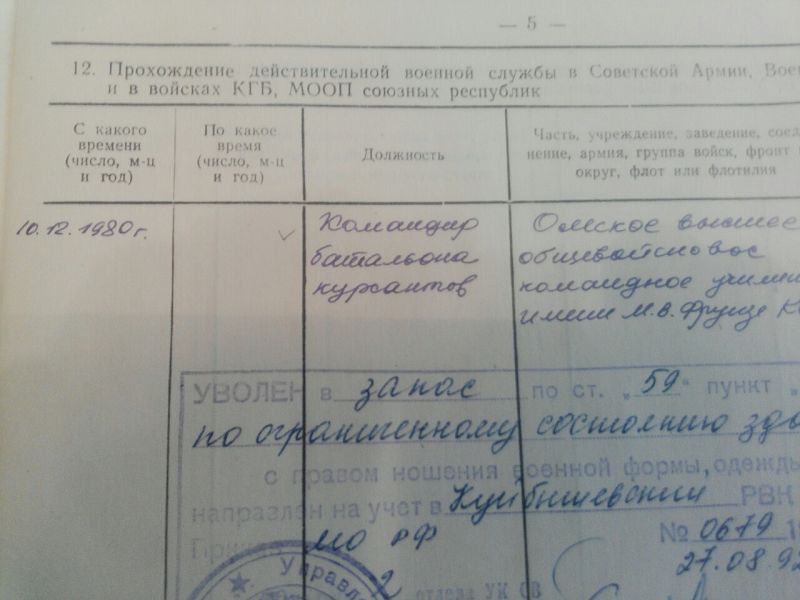 — 5 —
12. Прохождение действительной военной службы в Советской Армии,
и в войсках КГБ, МООП союзных республик
С какого
времени
(число, м-ц
и год)
По какое
время
(число, м-ц
и год)
Должность
Часть, учреждение, заведение, соеди-
нение, армия, группа войск, фронт
округ, флот или флотилия
10.12.1980г.
Командир
батальона
курсантов
Омское высшее
общевойсковое
командное
имени М.В. Фрунзе
УВОЛЕН в запас по ст. „59“ пункт „
по ограниченному состоянию
с правом ношения военной формы, одежды
направлен на учет в Куйбышевский РВК
МО РФ
№ 0679
27.08.92
Управле
отдела УК